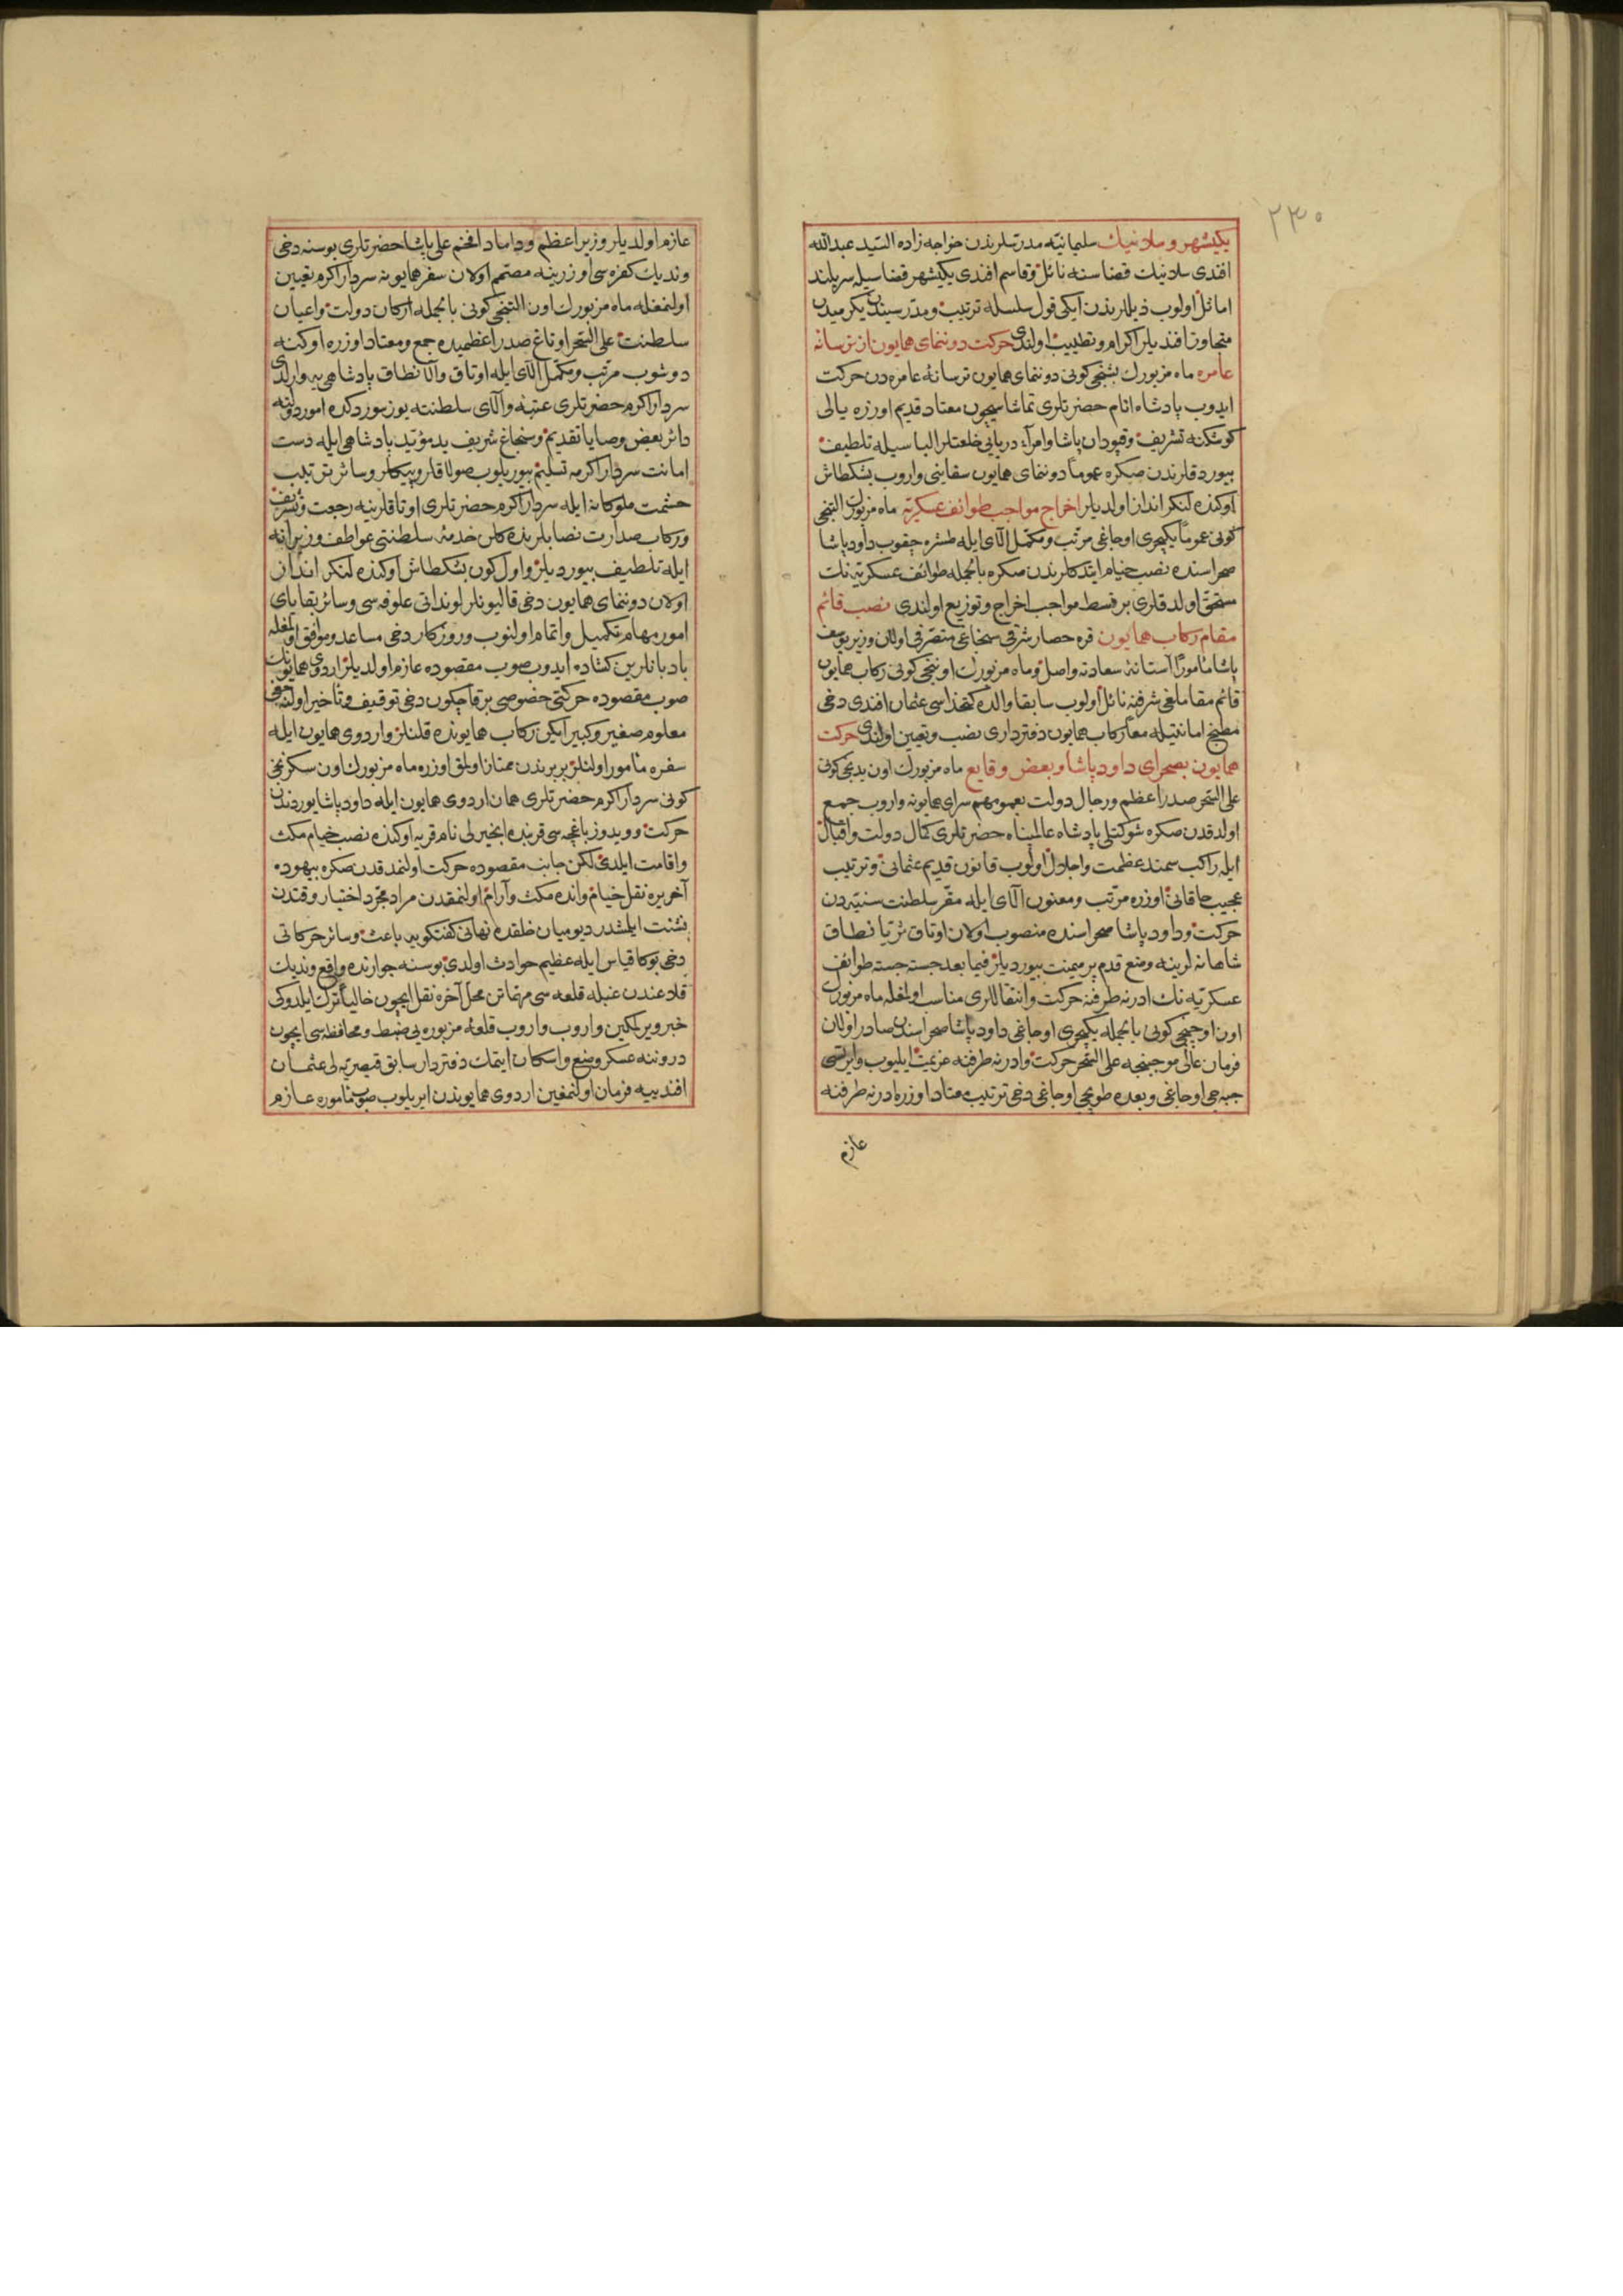 ٢٣٠
یکیشهر و سلانیك سلیمانیه مدرسلرندن خواجه زاده السید عبدالله
افندی سلانیك قضاسنه نائل وقاسم افندی یکیشهر قضاسیله سربلند
اماثل اولوب ذیللرندن ایکی قول سلسله ترتیب ومدرسیندن یکرمیدن
متجاوز افندیلر اکرام وتطییب اولندی حرکت دوننمای همایون از ترسانهٔ
عامره ماه مزبورك بشنجی کونی دوننمای همایون ترسانهٔ عامره دن حرکت
ایدوب پادشاه انام حضرتلری تماشاسیچون معتاد قدیم اوزره یالی
کوشکنه تشریف وقپودان پاشا وامرآء دریایی خلعتلر الباسیله تلطیف
بیوردقلرندن صکره عموماً دوننمای همایون سفاینی واروب بشکطاش
اوکنده لنکرانداز اولدیلر اخراج مواجب طوائف عسکریه ماه مزبورك التنجی
کونی عموماً یکیچری اوجاغی مرتب ومکمل آلای ایله طشره چقوب داود پاشا
صحراسنده نصب خیام ایتدکلرندن صکره بالجمله طوائف عسکریه نك
مستحق اولدقلری بر قسط مواجب اخراج وتوزیع اولندی نصب قائم
مقام رکاب همایون قره حصار شرقی سنجاغی متصرفی اولان وزیر یوسف
پاشا مأموراً آستانهٔ سعادته واصل وماه مزبورك اوننجی کونی رکاب همایون
قائم مقاملغی شرفنه نائل اولوب سابقا والده کتخداسی عثمان افندی دخی
مطبخ امانتیله معاً رکاب همایون دفترداری نصب وتعیین اولندی حرکت
همایون بصحرای داود پاشا وبعض وقایع ماه مزبورك اون یدنجی کونی
علی السحر صدر اعظم ورجال دولت بعمومهم سرای همایونه واروب جمع
اولدقدن صکره شوکتلی پادشاه عالمپناه حضرتلری کمال دولت واقبال
ایله راکب سمند عظمت واجلال اولوب قانون قدیم عثمانی وترتیب
عجیب خاقانی اوزره مرتب ومعنون آلای ایله مقر سلطنت سنیه دن
حرکت وداود پاشا صحراسنده منصوب اولان اوتاق ثریا نطاق
شاهانه لرینه وضع قدم پر میمنت بیوردیلر فیما بعد جسته جسته طوائف
عسکریه نك ادرنه طرفنه حرکت وانتقاللری مناسب اولمغله ماه مزبورك
اون اوچنجی کونی بالجمله یکیچری اوجاغی داود پاشا صحراسندن صادر اولان
فرمان عالی موجبنجه علی السحر حرکت وادرنه طرفنه عزیمت ایلیوب وایرتسی
جبه جی اوجاغی وبعده طوپچی اوجاغی دخی ترتیب معتاد اوزره ادرنه طرفنه
عازم
عازم اولدیلر وزیر اعظم وداماد افخم علی پاشا حضرتلری بوسنه دخی
وندیك کفره سی اوزرینه مصمم اولان سفر همایونه سردار اکرم تعیین
اولنمغله ماه مزبورك اون التنجی کونی بالجمله ارکان دولت واعیان
سلطنت علی السحر اوتاغ صدر اعظمیده جمع ومعتاد اوزره اوکنه
دوشوب مرتب ومکمل آلای ایله اوتاق والا نطاق پادشاهی یه وارلدی
سردار اکرم حضرتلری عتبهٔ والای سلطنته یوز سوردکده امور دولته
دائر بعض وصایا تقدیم وسنجاغ شریف ید مؤید پادشاهی ایله دست
امانت سردار اکرمه تسلیم بیوریلوب صولاقلر وپیکلر وسائر ترتیب
حشمت ملوکانه ایله سردار اکرم حضرتلری اوتاقلرینه رجعت وتشریف
ورکاب صدارت نصابلرنده کلن خدمهٔ سلطنتی عواطف وزیرانه
ایله تلطیف بیوردیلر واول کون بشکطاش اوکنده لنکر انداز
اولان دوننمای همایون دخی قالیونلر لونداتی علوفه سی وسائر بقایای
امور مهام تکمیل واتمام اولنوب وروزکار دخی مساعد وموافق اولمغله
بادبانلرین کشاده ایدوب صوب مقصوده عازم اولدیلر اردوی همایونك
صوب مقصوده حرکتی خصوصی برقاچ کون دخی توقیف وتأخیر اولنه جغی
معلوم صغیر وکبیر ایکن رکاب همایونده قلنلر واردوی همایون ایله
سفره مأمور اولنلر بربرندن ممتاز اولمق اوزره ماه مزبورك اون سکزنجی
کونی سردار اکرم حضرتلری همان اردوی همایون ایله داود پاشا یوردندن
حرکت وویدوز باغچه سی قربنده انجیرلی نام قریه اوکنده نصب خیام مکث
واقامت ایلدی لکن جانب مقصوده حرکت اولنمدقدن صکره بیهوده
آخر یره نقل خیام وانده مکث وآرام اولنمقدن مراد مجرد اختیار وقتدن
نشئت ایلمشدر دیو میان خلقده نهانی کفتکویه باعث وسائر حرکاتی
دخی بوکا قیاس ایله عظیم حوادث اولدی بوسنه جوارنده واقع وندیك
قلاعندن غبله قلعه سی مهماتن محل آخره نقل ایچون خالیاً ترك ایلدوکی
خبر ویرلمکین واروب واروب قلعهٔ مزبوره یی ضبط ومحافظه سی ایچون
دروننه عسکر وضع واسکان ایتمك دفتردار سابق قیصریه لی عثمان
افندییه فرمان اولنمغین اردوی همایوندن ایریلوب صوب مأموره عازم